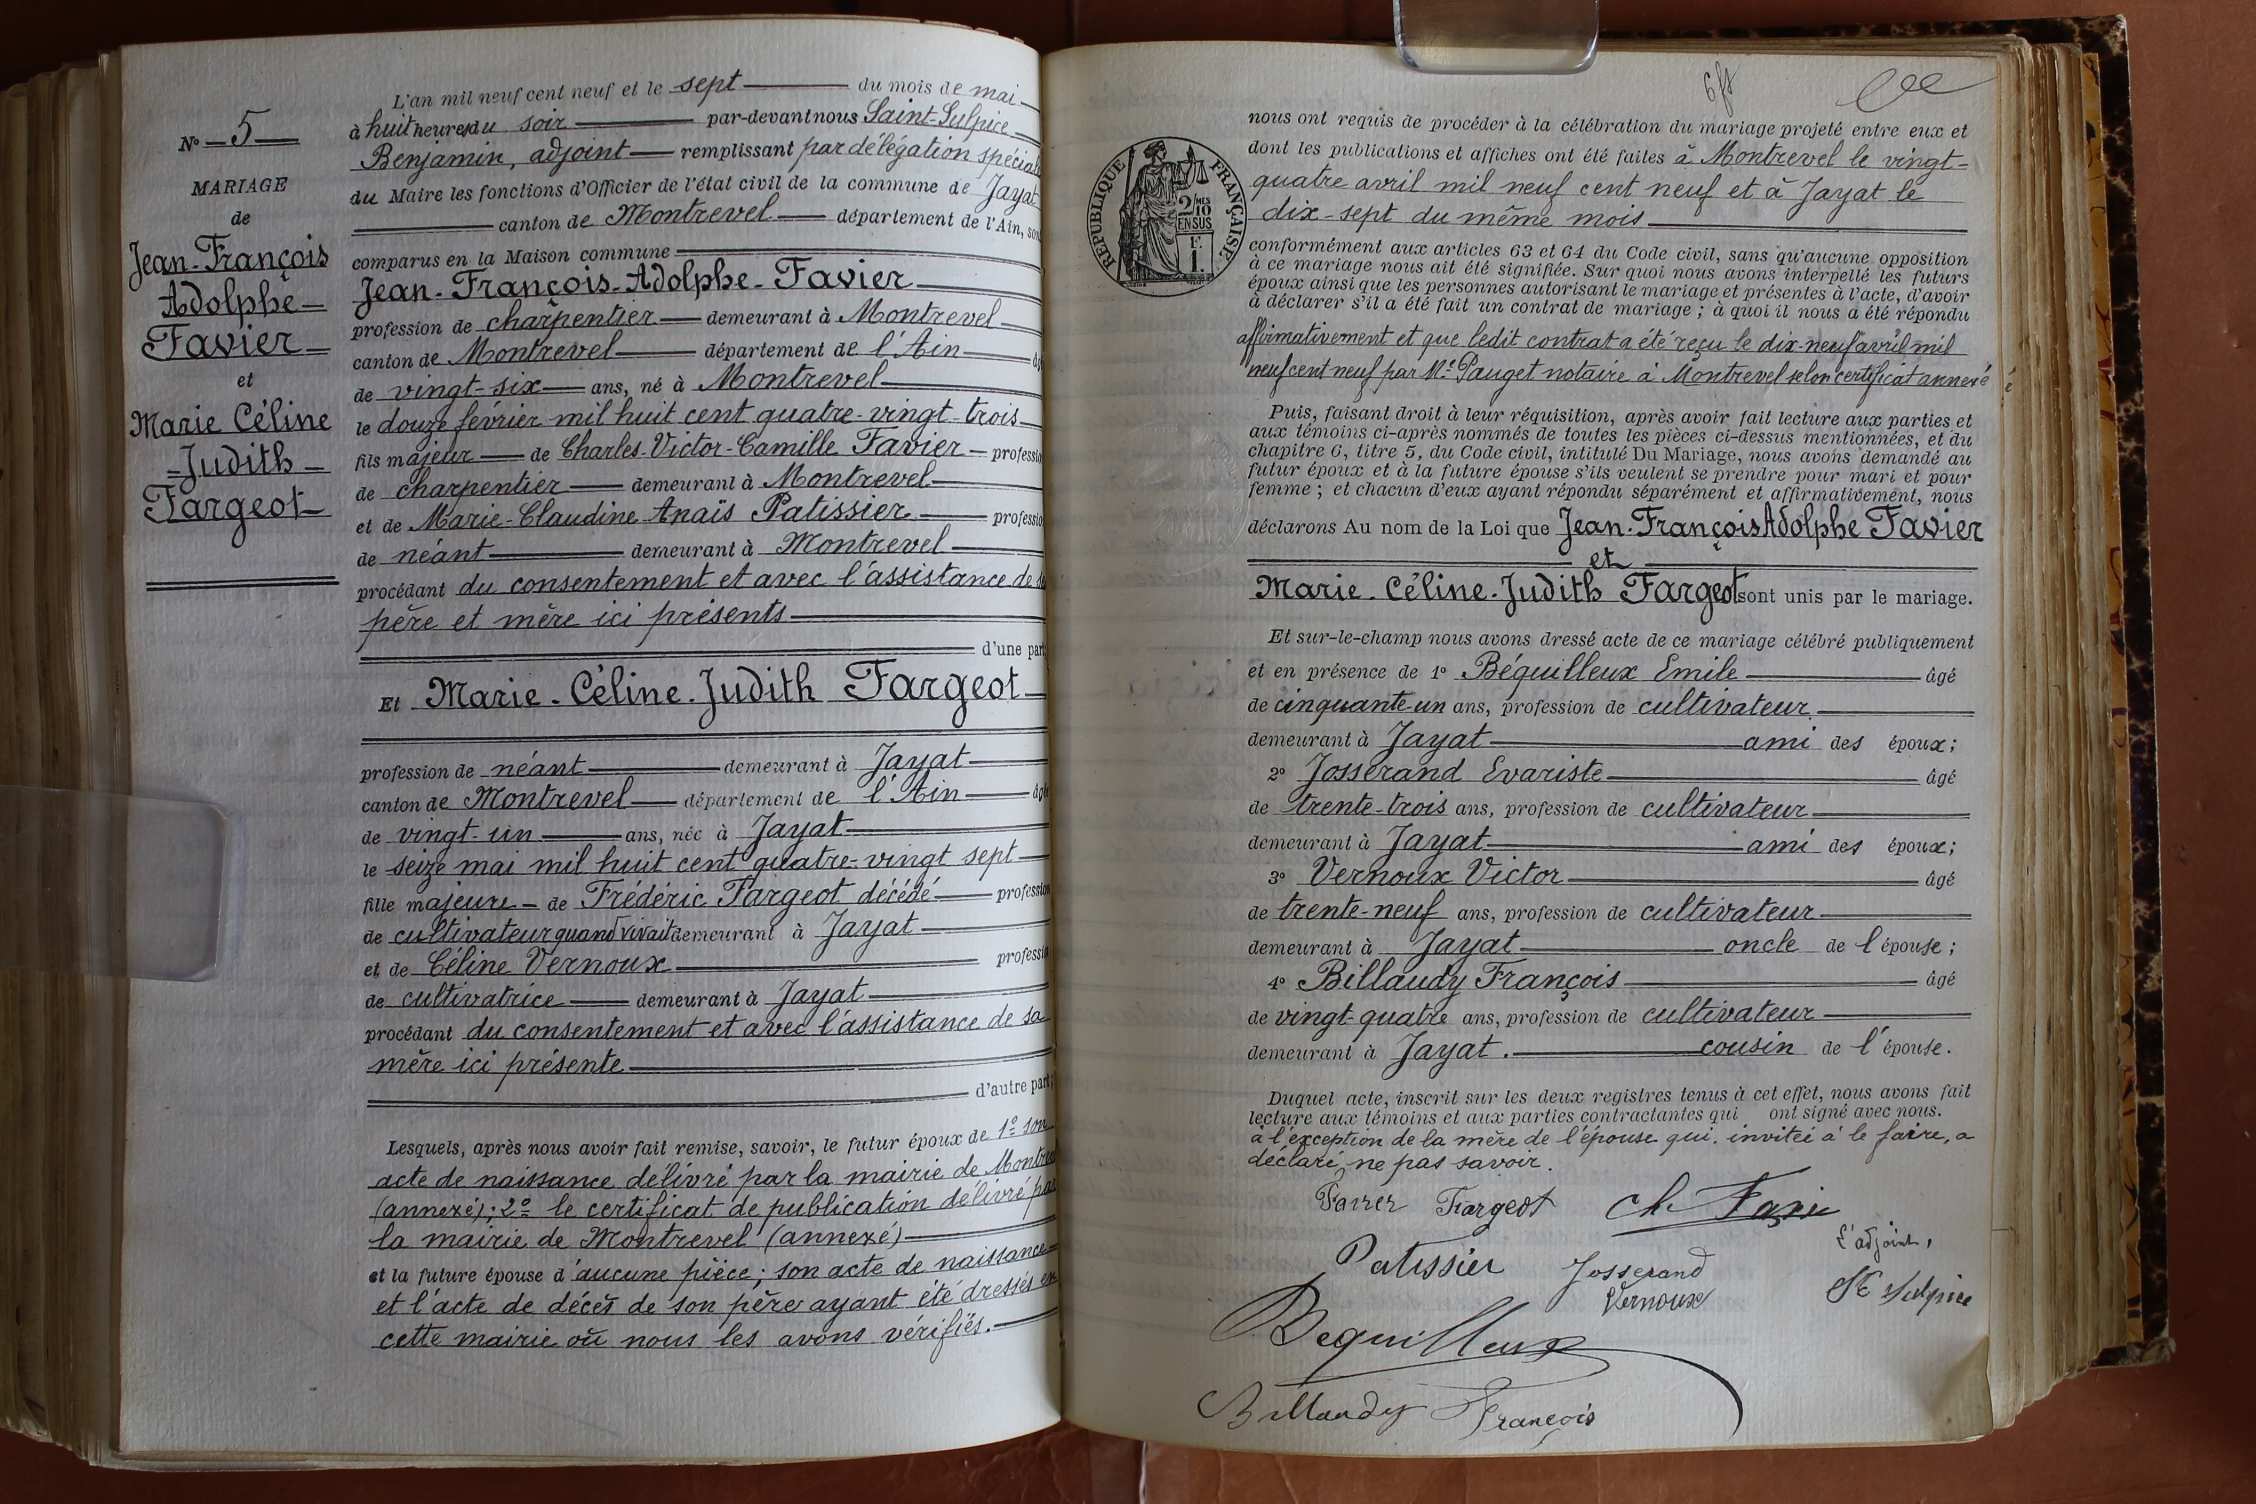 L'an mil neuf cent neuf et le sept du mois de mai
à huit heures du soir par-devant nous Saint-Sulpice
Benjamin, adjoint remplissant par délégation spéciale
du Maire les fonctions d'Officier de l'état civil de la commune de Jayat
canton de Montrevel département de l'Ain, sont
comparus en la Maison commune
Jean-François-Adolphe-Favier
profession de charpentier demeurant à Montrevel
canton de Montrevel département de l'Ain
de vingt-six ans, né à Montrevel
le douze février mil huit cent quatre-vingt-trois
fils majeur de Charles-Victor-Camille Favier profession
de charpentier demeurant à Montrevel
et de Marie-Claudine Anaïs Patissier profession
de néant demeurant à Montrevel
procédant du consentement et avec l'assistance de
père et mère ici présents
d'une part
Et Marie-Céline-Judith Fargeot
profession de néant demeurant à Jayat
canton de Montrevel département de l'Ain âgée
de vingt-un ans, née à Jayat
le seize mai mil huit cent quatre-vingt sept
fille majeure de Frédéric Fargeot décédé profession
de cultivateur quand vivait demeurant à Jayat
et de Céline Vernoux profession
de cultivatrice demeurant à Jayat
procédant du consentement et avec l'assistance de sa
mère ici présente
d'autre part;
Lesquels, après nous avoir fait remise, savoir, le futur époux de 1º son
acte de naissance délivré par la mairie de Montrevel
(annexé); 2º le certificat de publication délivré par
la mairie de Montrevel (annexé)
et la future épouse d'aucune pièce; son acte de naissance
et l'acte de décès de son père ayant été dressés en
cette mairie où nous les avons vérifiés.
Nº 5
MARIAGE
de
Jean-François
Adolphe
Favier
et
Marie Céline
Judith
Fargeot
nous ont requis de procéder à la célébration du mariage projeté entre eux et
dont les publications et affiches ont été faites à Montrevel le vingt-
quatre avril mil neuf cent neuf et à Jayat le
dix-sept du même mois
RÉPUBLIQUE FRANÇAISE
2/10
MES
EN SUS
1 F.
conformément aux articles 63 et 64 du Code civil, sans qu'aucune opposition
à ce mariage nous ait été signifiée. Sur quoi nous avons interpellé les futurs
époux ainsi que les personnes autorisant le mariage et présentes à l'acte, d'avoir
à déclarer s'il a été fait un contrat de mariage; à quoi il nous a été répondu
affirmativement et que ledit contrat a été reçu le dix-neuf avril mil
neuf cent neuf par Me Pauget notaire à Montrevel selon certificat annexé
Puis, faisant droit à leur réquisition, après avoir fait lecture aux parties et
aux témoins ci-après nommés de toutes les pièces ci-dessus mentionnées, et du
chapitre 6, titre 5, du Code civil, intitulé Du Mariage, nous avons demandé au
futur époux et à la future épouse s'ils veulent se prendre pour mari et pour
femme; et chacun d'eux ayant répondu séparément et affirmativement, nous
déclarons Au nom de la Loi que Jean-François Adolphe Favier
et
Marie-Céline-Judith Fargeot sont unis par le mariage.
Et sur-le-champ nous avons dressé acte de ce mariage célébré publiquement
et en présence de 1º Béquilleux Emile âgé
de cinquante-un ans, profession de cultivateur
demeurant à Jayat ami des époux;
2º Josserand Evariste âgé
de trente-trois ans, profession de cultivateur
demeurant à Jayat ami des époux;
3º Vernoux Victor âgé
de trente-neuf ans, profession de cultivateur
demeurant à Jayat oncle de l'épouse;
4º Billaudy François âgé
de vingt-quatre ans, profession de cultivateur
demeurant à Jayat. cousin de l'épouse.
Duquel acte, inscrit sur les deux registres tenus à cet effet, nous avons fait
lecture aux témoins et aux parties contractantes qui ont signé avec nous.
à l'exception de la mère de l'épouse qui, invitée à le faire, a
déclaré ne pas savoir.
Favier Fargeot Ch Favie
L'adjoint,
Patissier Josserand
Vernoux St Sulpice
Bequilleux
Billaudy François